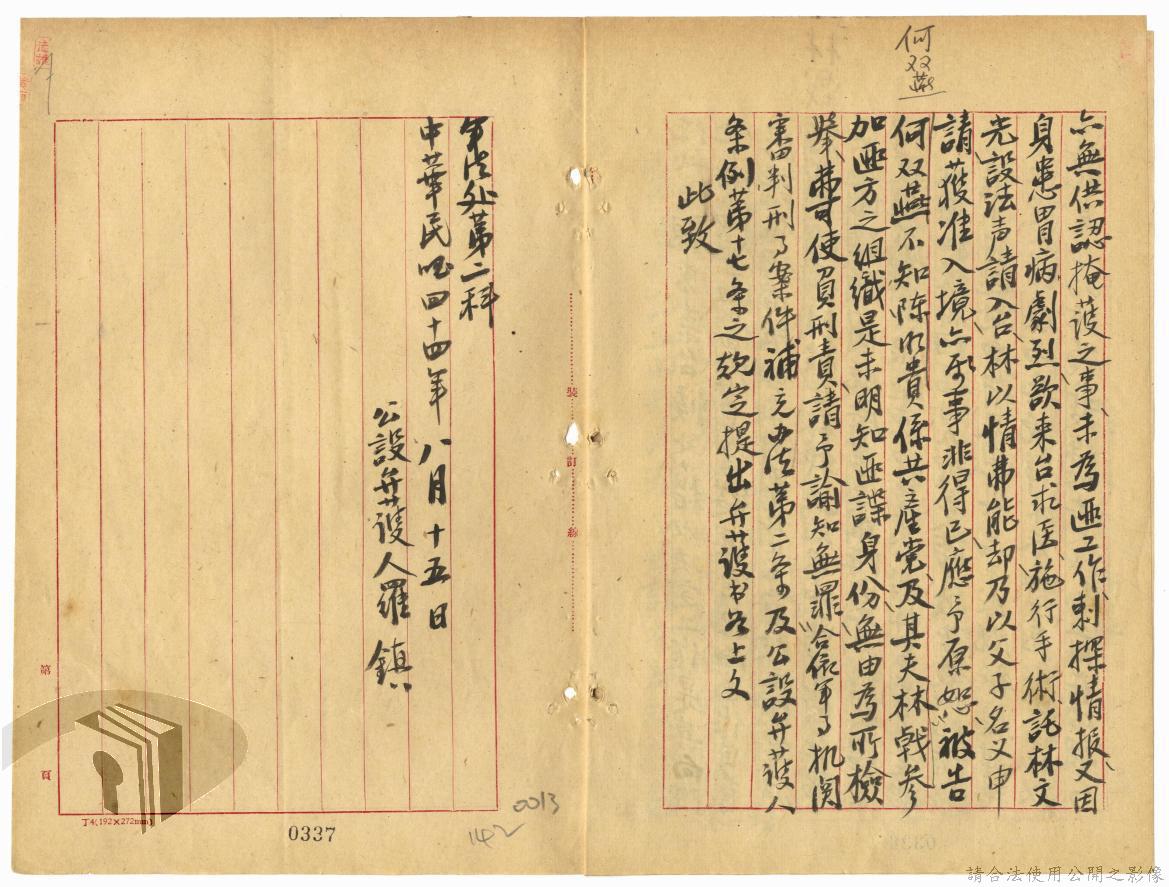 何双燕
亦無供認掩護之事未為匪工作刺探情报又因
身患胃病劇烈欲来台求医施行手術託林文
先設法声請入台林以情弗能却乃以父子名义申
請獲准入境亦属事非得已應予原恕被告
何双燕不知陈水貴係共產党及其夫林戟参
加匪方之组織是未明知匪諜身份無由為所檢
舉弗可使負刑責請予諭知無罪合依軍事机関
審判刑事案件補充办法第二条及公設弁護人
条例第十七条之規定提出弁護书如上文
此致
軍法处第二科
中華民国四十四年八月十五日
公設弁護人羅鎮
裝訂線
第 頁
丁4(192×272mm)
0337
0013
142
請合法使用公開之影像